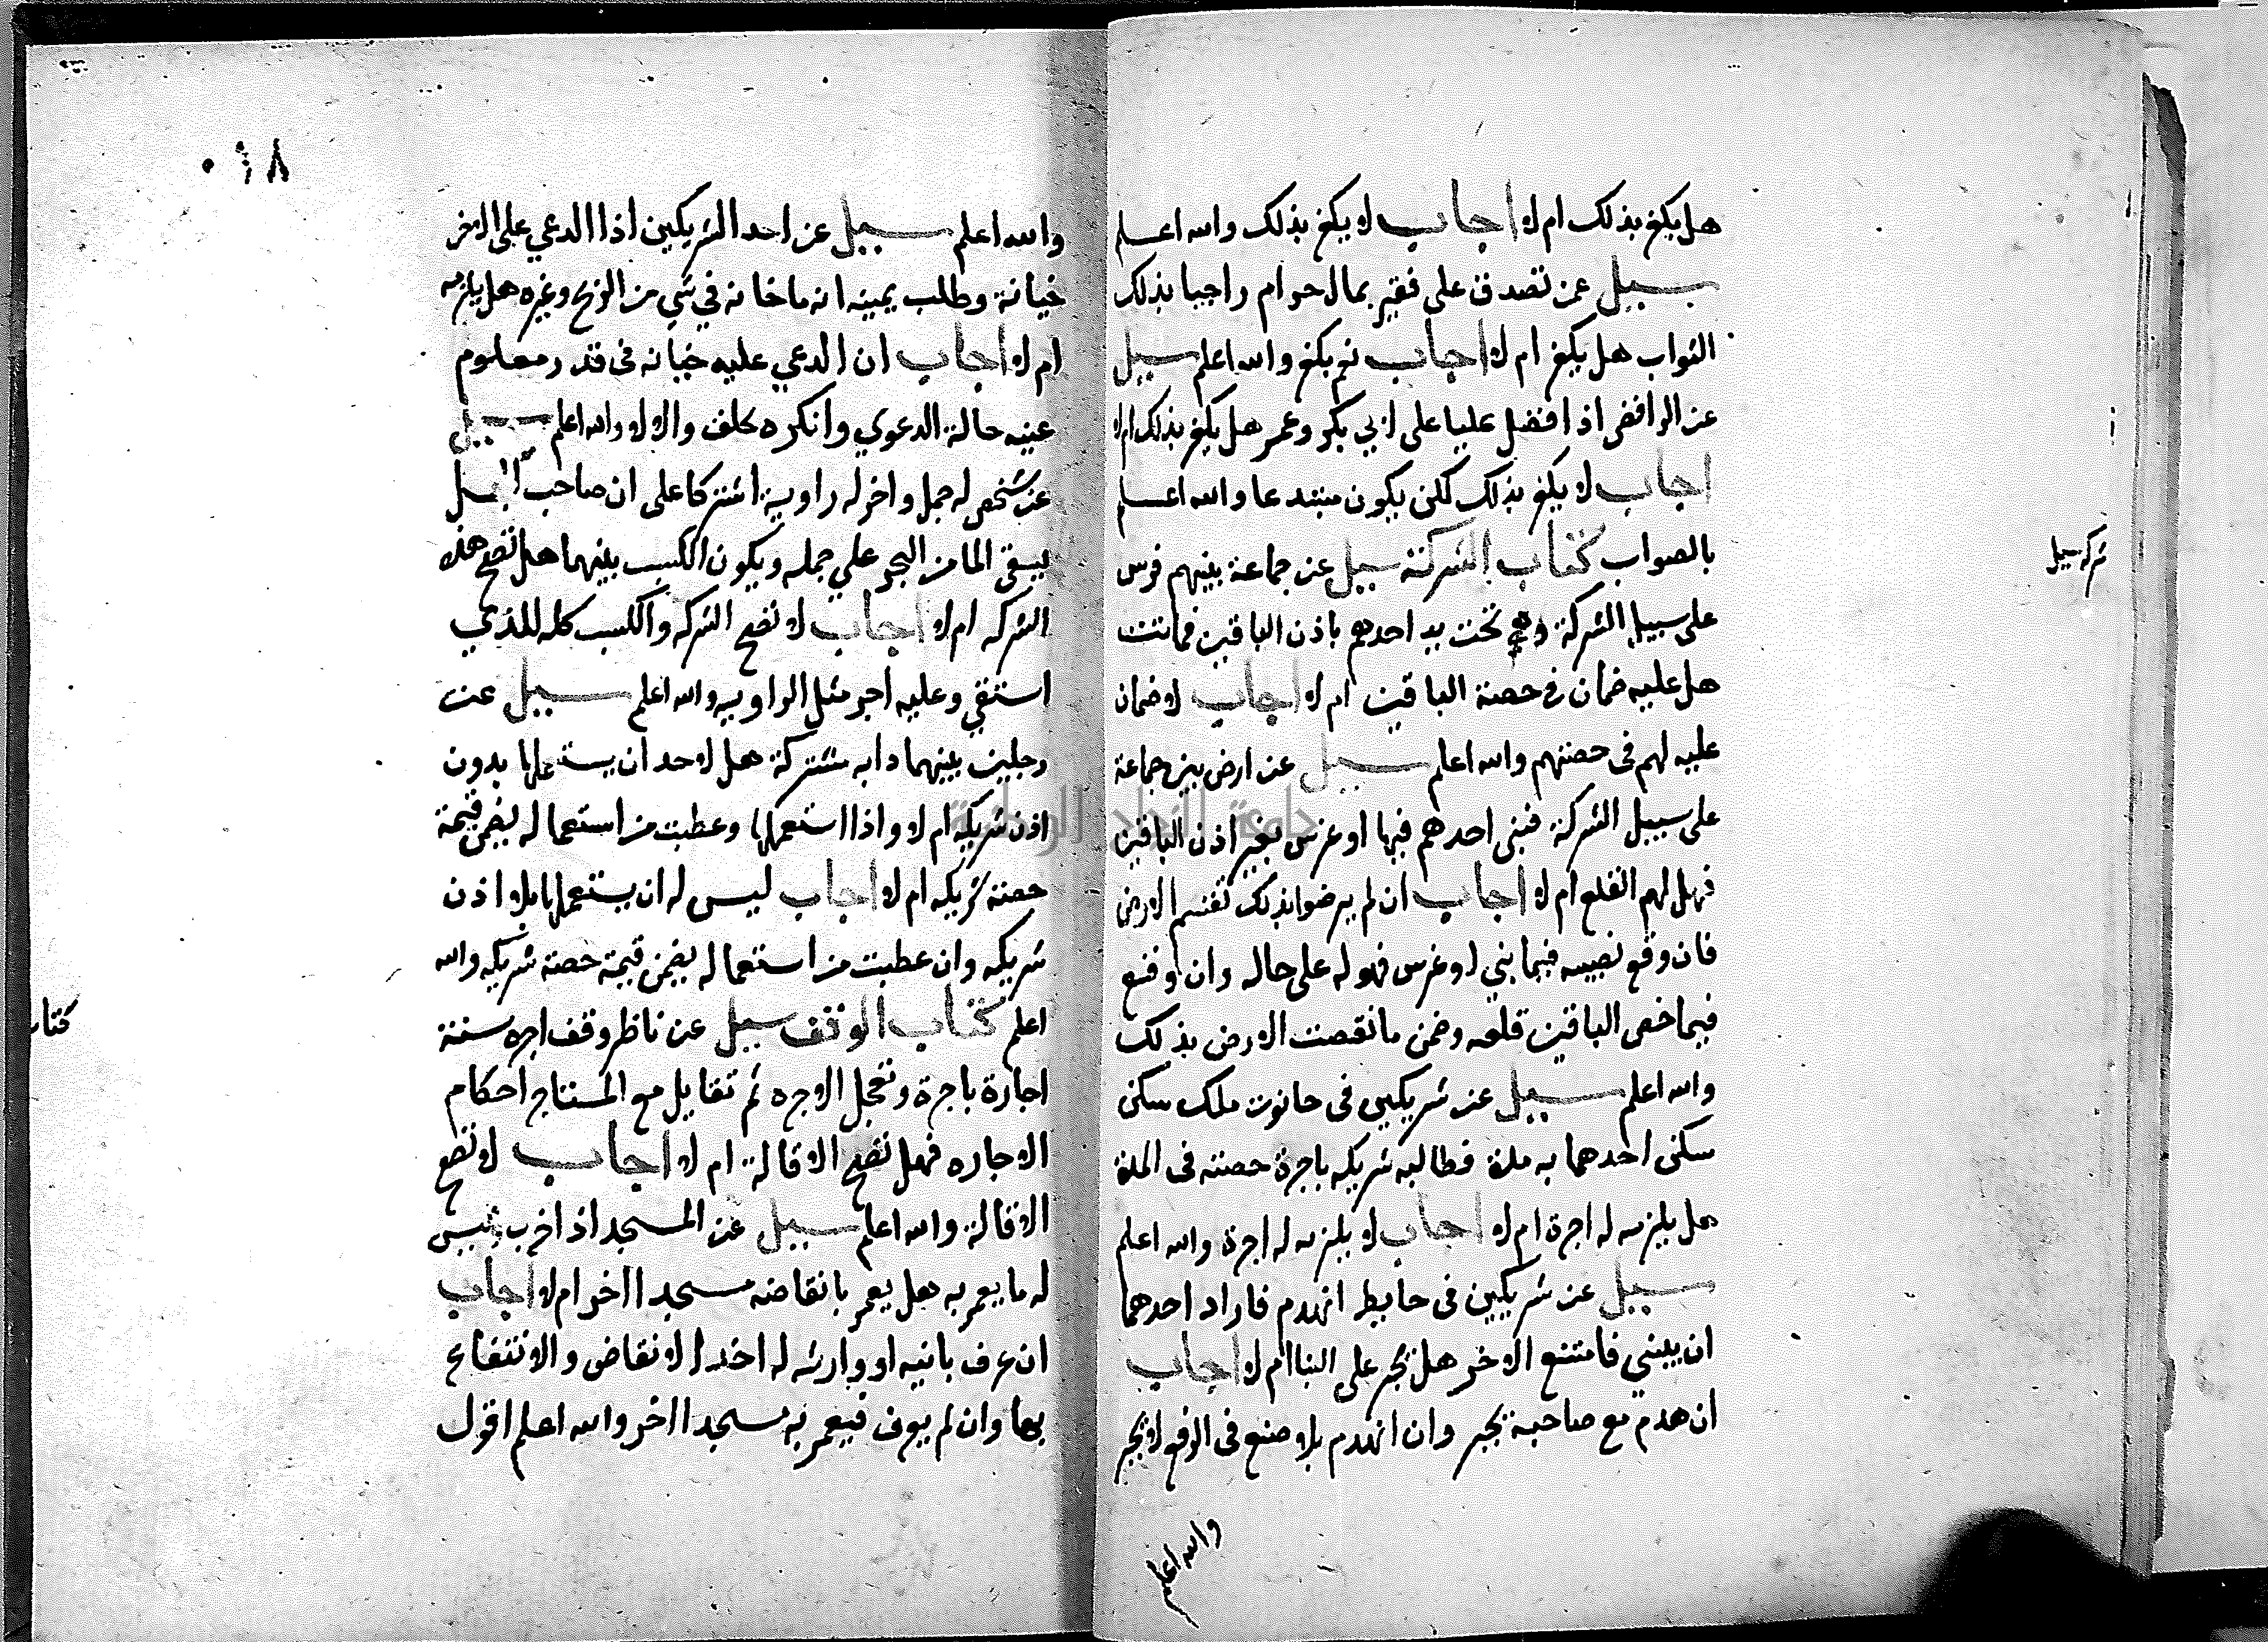 هل يكفر بذلك ام لا اجاب لا يكفر بذلك والله اعلم
سيل عمن تصدق على فقير بمال حرام راجيا بذلك
الثواب هل يكفر ام لا اجاب نعم يكفر والله اعلم سيل
عن الرافض اذا فضل عليا على ابي بكر وعمر هل يكفر بذلك ام لا
اجاب لا يكفر بذلك لكن يكون مبتدعا والله اعلم
بالصواب كتاب الشركة سيل عن جماعة بينهم فرس
على سبيل الشركة وهي تحت يد احدهم باذن الباقين فماتت
هل عليه ضمان في حصة الباقين ام لا اجاب لا ضمان
عليه لهم في حصتهم والله اعلم سيل عن ارض بين جماعة
على سبيل الشركة فبنى احدهم فيها او غرس بغير اذن الباقين
فهل لهم القلع ام لا اجاب ان لم يرضوا بذلك تقسم الارض
فان وقع نصيبه فيما بني او غرس فهو له على حاله وان وقع
فيما خص الباقين قلعه وضمن ما نقصت الارض بذلك
والله اعلم سيل عن شريكين في حانوت ملك سكن
سكنى احدهما به مدة فطالبه شريكه باجرة حصته في المدة
هل يلزمه له اجرة ام لا اجاب لا يلزمه له اجرة والله اعلم
سيل عن شريكين في حايط انهدم فاراد احدهما
ان يبني فامتنع الاخر هل يجبر على البنا ام لا اجاب
ان هدم مع صاحبه يجبر وان انهدم بلا صنع في الرفع لا يجبر
والله اعلم
شركه سيل
٠٦٨
والله اعلم سيل عن احد الشريكين اذا ادعي على الاخر
خيانة وطلب يمينه انه ما خانه في شي من الربح وغيره هل يلزمه
ام لا اجاب ان ادعي عليه خيانه في قدر معلوم
عينه حالة الدعوي وانكره حلف والا لا والله اعلم سيل
عن شخص له جمل واخر له راوية اشتركا على ان صاحب الجمل
يسقي الما من البحر علي جمله ويكون الكسب بينهما هل تصح هذه
الشركه ام لا اجاب لا تصح الشركه والكسب كله للذي
استقي وعليه اجر مثل الراويه والله اعلم سيل عن
رجلين بينهما دابه مشتركة هل لاحد ان يستعملها بدون
اذن شريكه ام لا واذا استعملها وعطبت من استعماله يضمن قيمة
حصة شريكه ام لا اجاب ليس له ان يستعملها بلا اذن
شريكه وان عطبت من استعماله يضمن قيمة حصة شريكه والله
اعلم كتاب الوقف سيل عن ناظر وقف اجره سنة
اجارة باجرة وتعجل الاجره ثم تقايل مع المستاجر احكام
الاجاره فهل تصح الاقالة ام لا اجاب لا تصح
الاقالة والله اعلم سيل عن المسجد اذا خرب وليس
له ما يعمر به هل يعمر بانقاضه مسجد ااخر ام لا اجاب
ان عرف بانيه او وارثه له اخذ الانقاض والانتفاع
بها وان لم يعرف فيعمر به مسجد ااخر والله اعلم اقول
كتاب